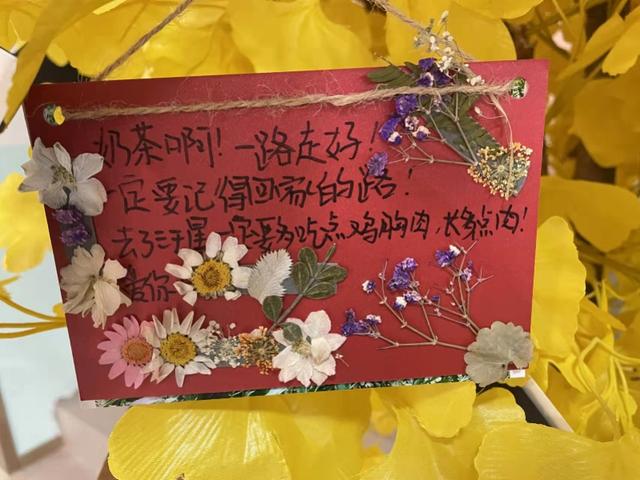 奶茶啊！一路走好！
一定要记得回家的路！
去了汪星一定要多吃点鸡胸肉，长点肉！
爱你